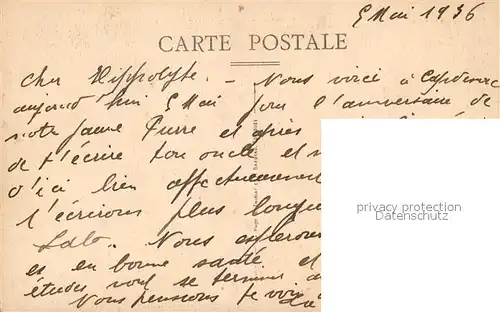 9 Mai 1936
CARTE POSTALE
Cher Hippolyte. - Nous voici à Capdenac
aujourd'hui 9 Mai jour de l'aniversaire de
notre Pierre et après
de t'écrire ton oncle et
d'ici bien affectueusement
t'écrirons plus
Nous esperons
es en bonne santé et
études vont se terminer
Nous pensons te voir
privacy protection
Datenschutz